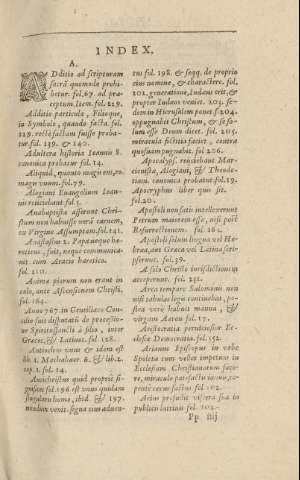 INDEX.
A.
ADditio ad scripturam
sacrã quomodo prohi-
betur. fol. 67. ad præ-
ceptum. Item. fol. 219.
Additio particulæ, Filioque,
in Symbolo, quando facta. fol.
129. rectè factam fuisse proba-
tur. fol. 139. & 140.
Adulteræ historia Ioannis 8.
canonica probatur fol. 14.
Aliquid, quanto magis
magis unum. fol. 79.
Alogiani Euangelium Ioan-
nis reiiciebant fol. 5.
Anabaptistæ asserunt Chri-
stum non habuisse verã carnem,
ex Virgine Assumptam. fol. 141.
Anastasius 2. Papa neque hæ-
reticus, fuit, neque communica-
uit cum Acatio hæretico.
fol. 210.
Animæ piorum non erant in
cælo, ante Ascensionem Christi,
fol. 164.
Anno 767. in Gentiliaco Con-
cilio fuit disputatũ de processio-
ne Spiritussancti à filio, inter
Græcos, & Latinos. fol. 128.
Antiochus unus & idem est
lib. 1. Machabæor. 6. & lib. 2.
cap. 1. fol. 14.
Antichristus quid propriè si-
gnificat fol. 196 est unus quidam
singularis homo, ibid. & 197.
nondum venit. signa eius aduen-
tus fol. 198. & seqq. de proprio
eius nomine, & charactere. fol.
201. generatione, Iudæus erit, &
propter Iudæos veniet. 203. se-
dem in Hierusalem ponet. f. 204.
oppugnabit Christum, & se so-
lum esse Deum dicet. fol. 205.
miracula fictitia faciet, contra
quos iam pugnabit. fol. 206.
Apocalyps. reiiciebant Mar-
cionistæ, Alogiani, & Theodo-
tiani. canonica probatur fol. 19.
Apocryphus liber quis sit.
fol. 20.
Apostoli non satis intellexerunt
Christum moriturum esse, nisi post
Resurrectionem. fol. 162.
Apostoli solum lingua vel He-
bræa, aut Græca vel Latina scri-
pserunt. fol. 39.
A solo Christo iurisdictionem
acceperunt. fol. 251.
Arca tempore Salomonis non
nisi tabulas legis continebat, po-
stea verò habuit manna, &
virgam Aaron. fol. 17.
Aristocratia perniciosa Ec-
clesiæ Democratia. fol. 152.
Arianus Episcopus in vrbe
Spoleta cum vellet impetum in
Ecclesiam Christianorum face-
re, miraculo patefactæ ianuæ, re-
pentè cæcus factus fol. 102.
Arius profudit viscera sua in
publico latrina fol. 102.
Pp iiij